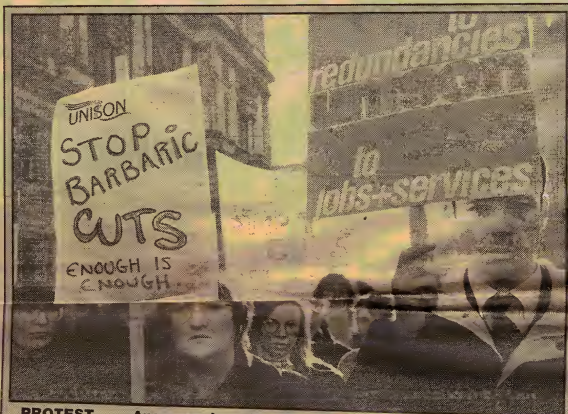 UNISON
STOP
BARBARIC
CUTS
ENOUGH IS
ENOUGH
to
redundancies
to
jobs+services
PROTEST